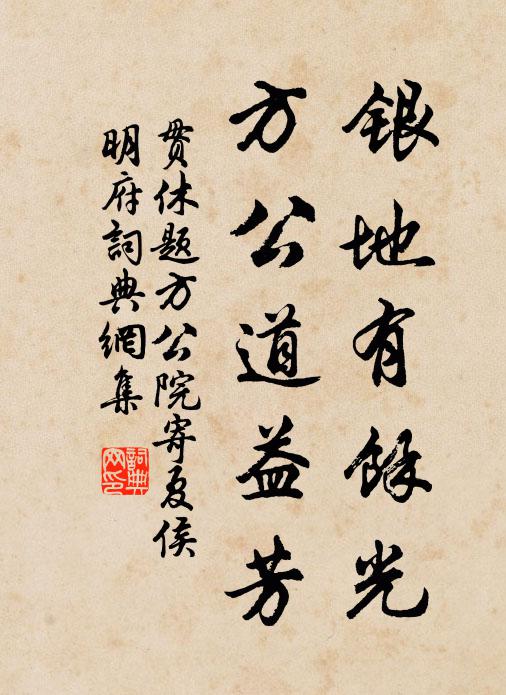 銀地有餘光
方公道益芳
貫休題方公院寄夏侯
明府詞典網集
詞典
网印